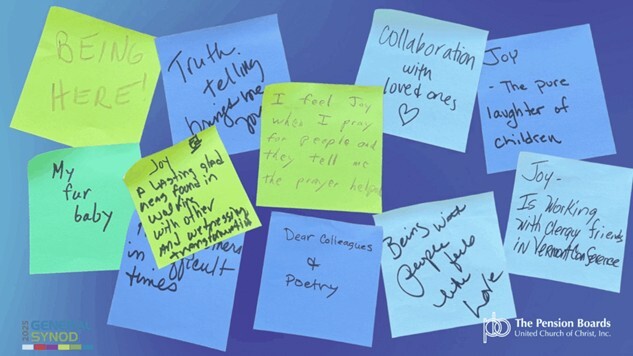 BEING
HERE!
Truth.
telling
brings me
Collaboration
with
loved ones
Joy
- The pure
laughter of
children
I feel Joy
when I pray
for people and
they tell me
the prayer helped
My
fur
baby
Joy
A lasting glad
ness found in
walking
with other
and witnessing
transformation
in difficult
times
Dear Colleagues
&
Poetry
Being with
People
like
Joy -
Is Working
with Clergy friends
in Vermont Conference
2025
GENERAL
SYNOD
The Pension Boards
United Church of Christ, Inc.